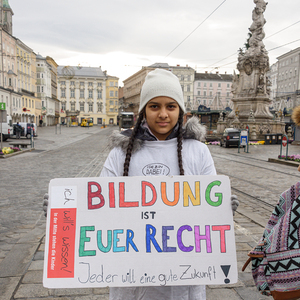 ICH BIN
DABEI!
ich will's wissen!
BILDUNG
IST
EUER RECHT
Jeder will eine gute Zukunft!